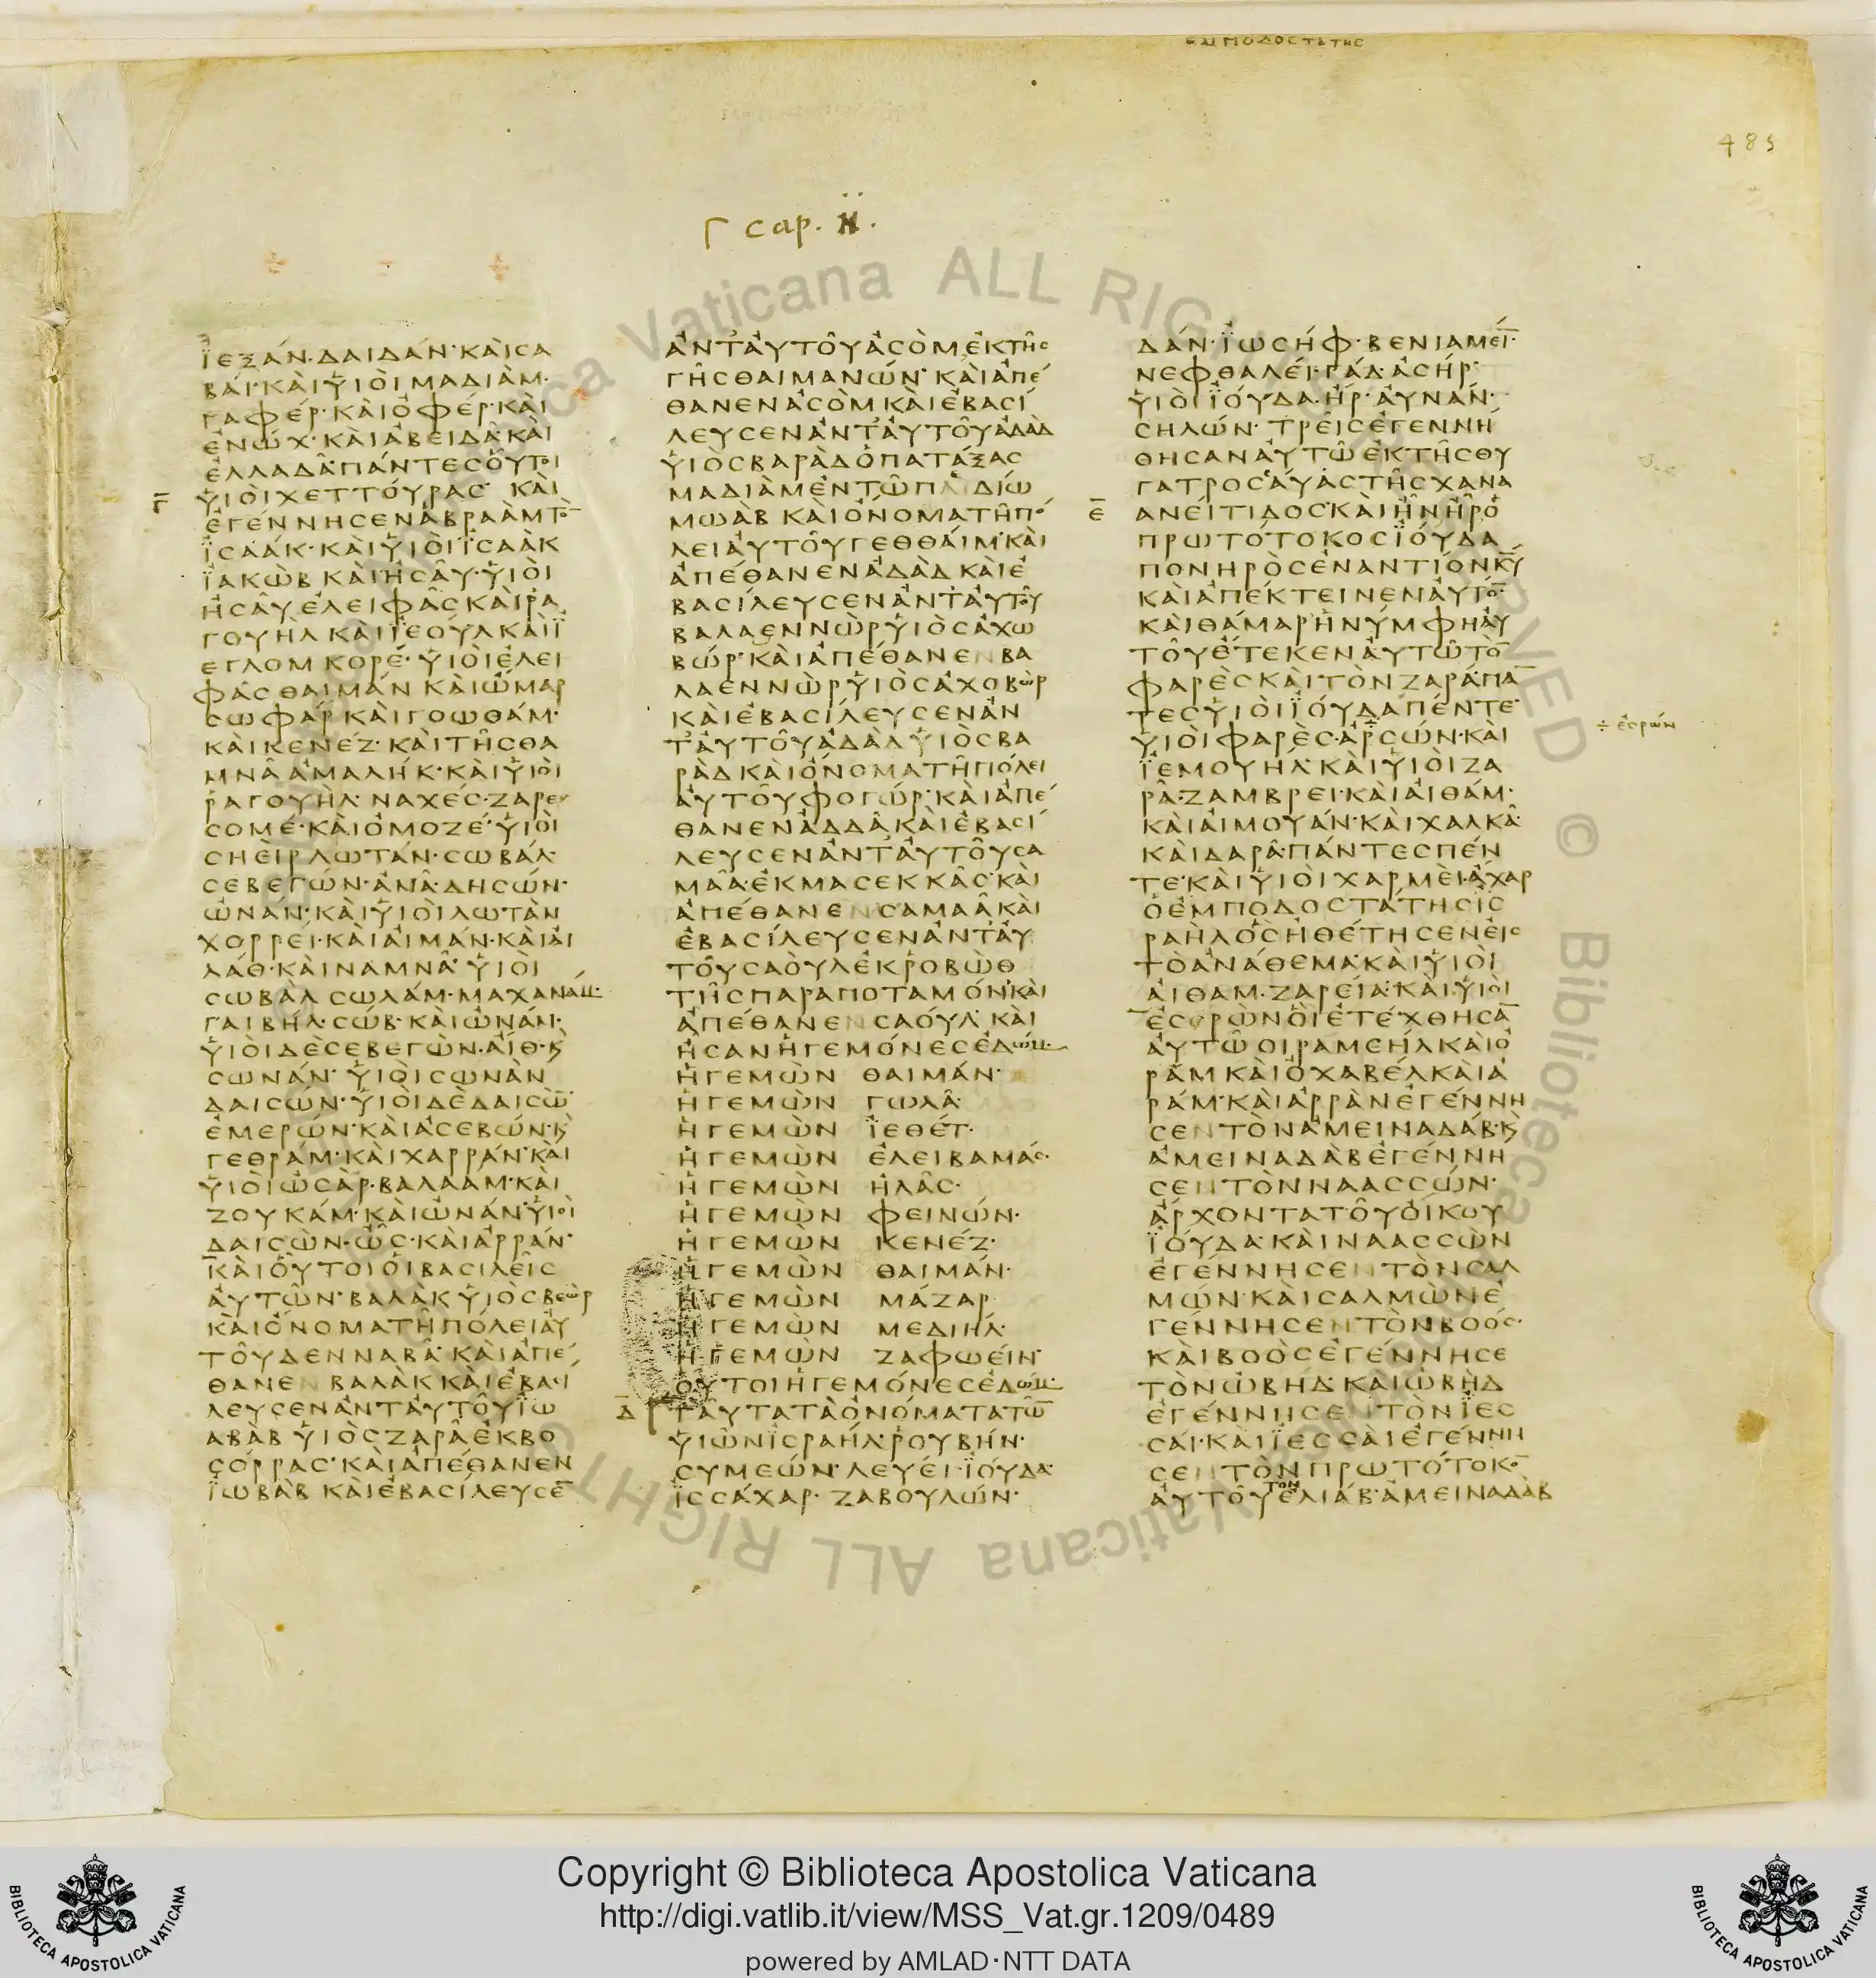 ΕΜΠΟΔΟCΤΑΤΗC
485
Γ cap. II.
ΪΕΞΑΝ·ΔΑΙΔΑΝ·ΚΑΙCΑ
ΒΑΙ·ΚΑΙΥΙΟΙΜΑΔΙΑΜ·
ΓΑΦΕΡ·ΚΑΙΟΦΕΡ·ΚΑΙ
ΕΝΩΧ·ΚΑΙΑΒΕΙΔΑ·ΚΑΙ
ΕΛΛΑΔΑ·ΠΑΝΤΕCΟΥΤΟΙ
Γ ΥΙΟΙΧΕΤΤΟΥΡΑC· ΚΑΙ
ΕΓΕΝΝΗCΕΝΑΒΡΑΑΜΤΟ̄
ΪCΑΑΚ·ΚΑΙΥΙΟΙΪCΑΑΚ
ΪΑΚΩΒ ΚΑΙΗCΑΥ·ΥΙΟΙ
ΗCΑΥΕΛΕΙΦΑCΚΑΙΡΑ
ΓΟΥΗΛ ΚΑΙΪΕΟΥΛΚΑΙΪ
ΕΓΛΟΜ ΚΟΡΕ· ΥΙΟΙΕΛΕΙ
ΦΑCΘΑΙΜΑΝ ΚΑΙΩΜΑΡ
CΩΦΑΡ ΚΑΙΓΟΩΘΑΜ·
ΚΑΙΚΕΝΕΖ·ΚΑΙΤΗCΘΑ
ΜΝΑΑΜΑΛΗΚ·ΚΑΙΥΙΟΙ
ΡΑΓΟΥΗΛ·ΝΑΧΕC·ΖΑΡΕ
CΟΜΕ·ΚΑΙΟΜΟΖΕ·ΥΙΟΙ
CΗΕΙΡ ΛΩΤΑΝ·CΩΒΑΛ·
CΕΒΕΓΩΝ·ΑΝΑ·ΔΗCΩΝ·
ΩΝΑΝ·ΚΑΙΥΙΟΙΛΩΤΑΝ
ΧΟΡΡΕΙ·ΚΑΙΑΙΜΑΝ·ΚΑΙΑΙ
ΛΑΘ·ΚΑΙΝΑΜΝΑ· ΥΙΟΙ
CΩΒΑΛ CΩΛΑΜ·ΜΑΧΑΝΑΜ·
ΓΑΙΒΗΛ·CΩΒ·ΚΑΙΩΝΑΜ·
ΥΙΟΙΔΕCΕΒΕΓΩΝ·ΑΙΘ·Κ
CΩΝΑΝ· ΥΙΟΙCΩΝΑΝ
ΔΑΙCΩΝ·ΥΙΟΙΔΕΔΑΙCΩ̄
ΕΜΕΡΩΝ·ΚΑΙΑCΕΒΩΝ·Κ
ΓΕΘΡΑΜ·ΚΑΙΧΑΡΡΑΝ·ΚΑΙ
ΥΙΟΙΩCΑΡ·ΒΑΛΑΑΜ·ΚΑΙ
ΖΟΥΚΑΜ·ΚΑΙΩΝΑΝ·ΥΙΟΙ
ΔΑΙCΩΝ·ΩC·ΚΑΙΑΡΡΑΝ·
ΚΑΙΟΥΤΟΙΟΙΒΑCΙΛΕΙC
ΑΥΤΩΝ·ΒΑΛΑΚ ΥΙΟCΒΕΩΡ
ΚΑΙΟΝΟΜΑΤΗΠΟΛΕΙΑΥ
ΤΟΥΔΕΝΝΑΒΑ·ΚΑΙΑΠΕ
ΘΑΝΕΝ ΒΑΛΑΚ ΚΑΙΕΒΑCΙ
ΛΕΥCΕΝΑΝΤΑΥΤΟΥΪΩ
ΑΒΑΒ ΥΙΟCΖΑΡΑΕΚΒΟ
CΟΡΡΑC·ΚΑΙΑΠΕΘΑΝΕΝ
ΪΩΒΑΒ ΚΑΙΕΒΑCΙΛΕΥCΕ̄
ΑΝΤΑΥΤΟΥΑCΟΜΕΚΤΗC
ΓΗCΘΑΙΜΑΝΩΝ· ΚΑΙΑΠΕ
ΘΑΝΕΝΑCΟΜ ΚΑΙΕΒΑCΙ
ΛΕΥCΕΝΑΝΤΑΥΤΟΥΑΔΑΔ
ΥΙΟCΒΑΡΑΔΟΠΑΤΑΞΑC
ΜΑΔΙΑΜΕΝΤΩΠΑΙΔΙΩ
ΜΩΑΒ ΚΑΙΟΝΟΜΑΤΗΠΟ
ΛΕΙΑΥΤΟΥΓΕΘΘΑΙΜ·ΚΑΙ
ΑΠΕΘΑΝΕΝΑΔΑΔ ΚΑΙΕ
ΒΑCΙΛΕΥCΕΝΑΝΤΑΥΤΟΥ
ΒΑΛΑΕΝΝΩΡΥΙΟCΑΧΩ
ΒΩΡ·ΚΑΙΑΠΕΘΑΝΕΝΒΑ
ΛΑΕΝΝΩΡΥΙΟCΑΧΟΒΩΡ
ΚΑΙΕΒΑCΙΛΕΥCΕΝΑΝ
ΤΑΥΤΟΥΑΔΑΔ ΥΙΟCΒΑ
ΡΑΔ ΚΑΙΟΝΟΜΑΤΗΠΟΛΕΙ
ΑΥΤΟΥΦΟΓΩΡ·ΚΑΙΑΠΕ
ΘΑΝΕΝΑΔΔΑ ΚΑΙΕΒΑCΙ
ΛΕΥCΕΝΑΝΤΑΥΤΟΥCΑ
ΜΑΑ·ΕΚΜΑCΕΚΚΑC·ΚΑΙ
ΑΠΕΘΑΝΕΝCΑΜΑΑ ΚΑΙ
ΕΒΑCΙΛΕΥCΕΝΑΝΤΑΥ
ΤΟΥCΑΟΥΛΕΚΡΟΒΩΘ
ΤΗCΠΑΡΑΠΟΤΑΜΟΝ·ΚΑΙ
ΑΠΕΘΑΝΕΝCΑΟΥΛ· ΚΑΙ
ΗCΑΝΗΓΕΜΟΝΕCΕΔΩΜ·
ΗΓΕΜΩΝ ΘΑΙΜΑΝ·
ΗΓΕΜΩΝ ΓΩΛΑ·
ΗΓΕΜΩΝ ΪΕΘΕΤ·
ΗΓΕΜΩΝ ΕΛΕΙΒΑΜΑC·
ΗΓΕΜΩΝ ΗΛΑC·
ΗΓΕΜΩΝ ΦΕΙΝΩΝ·
ΗΓΕΜΩΝ ΚΕΝΕΖ·
ΗΓΕΜΩΝ ΘΑΙΜΑΝ·
ΗΓΕΜΩΝ ΜΑΖΑΡ
ΗΓΕΜΩΝ ΜΕΔΙΗΛ·
ΗΓΕΜΩΝ ΖΑΦΩΕΙΝ·
ΟΥΤΟΙΗΓΕΜΟΝΕCΕΔΩΜ·
Δ ΤΑΥΤΑΤΑΟΝΟΜΑΤΑΤΩ̄
ΥΙΩΝΪCΡΑΗΛ·ΡΟΥΒΗΝ·
CΥΜΕΩΝ·ΛΕΥΕΙ·ΪΟΥΔΑ·
ΪCCΑΧΑΡ· ΖΑΒΟΥΛΩΝ·
ΔΑΝ·ΪΩCΗΦ·ΒΕΝΙΑΜΕῙ·
ΝΕΦΘΑΛΕΙ·ΓΑΔ·ΑCΗΡ·
ΥΙΟΙΪΟΥΔΑ·ΗΡ·ΑΥΝΑΝ·
CΗΛΩΝ· ΤΡΕΙCΕΓΕΝΝΗ
ΘΗCΑΝΑΥΤΩΕΚΤΗCΘΥ
ΓΑΤΡΟCΑΥΑCΤΗCΧΑΝΑ
Ε ΑΝΕΙΤΙΔΟC·ΚΑΙΗΝΗΡΟ
ΠΡΩΤΟΤΟΚΟCΪΟΥΔΑ
ΠΟΝΗΡΟCΕΝΑΝΤΙΟΝΚ̄Ῡ
ΚΑΙΑΠΕΚΤΕΙΝΕΝΑΥΤΟ̄·
ΚΑΙΘΑΜΑΡΗΝΥΜΦΗΑΥ
ΤΟΥΕΤΕΚΕΝΑΥΤΩΤΟ̄
ΦΑΡΕCΚΑΙΤΟΝΖΑΡΑ·ΠᾹ
ΤΕCΥΙΟΙΪΟΥΔΑΠΕΝΤΕ·
ΥΙΟΙΦΑΡΕC·ΑΡCΩΝ·ΚΑΙ
÷ ἐσρών
ΪΕΜΟΥΗΛ·ΚΑΙΥΙΟΙΖΑ
ΡΑ·ΖΑΜΒΡΕΙ·ΚΑΙΑΙΘΑΜ·
ΚΑΙΑΙΜΟΥΑΝ·ΚΑΙΧΑΛΚΑ·
ΚΑΙΔΑΡΑ·ΠΑΝΤΕCΠΕΝ
ΤΕ·ΚΑΙΥΙΟΙΧΑΡΜΕΙ·ΑΧΑΡ
ΟΕΜΠΟΔΟCΤΑΤΗCΪC
ΡΑΗΛΟCΗΘΕΤΗCΕΝΕΙC
ΤΟΑΝΑΘΕΜΑ·ΚΑΙΥΙΟΙ
ΑΙΘΑΜ·ΖΑΡΕΙΑ·ΚΑΙΥΙΟΙ
ΕCΕΡΩΝΟΙΕΤΕΧΘΗCᾹ
ΑΥΤΩΟΙΡΑΜΕΗΛΚΑΙΟ
ΡΑΜ ΚΑΙΟΧΑΒΕΛΚΑΙΑ
ΡΑΜ·ΚΑΙΑΡΡΑΝΕΓΕΝΝΗ
CΕΝΤΟΝΑΜΕΙΝΑΔΑΒ·Κ
ΑΜΕΙΝΑΔΑΒΕΓΕΝΝΗ
CΕΝΤΟΝΝΑΑCCΩΝ·
ΑΡΧΟΝΤΑΤΟΥΟΙΚΟΥ
ΪΟΥΔΑ·ΚΑΙΝΑΑCCΩΝ
ΕΓΕΝΝΗCΕΝΤΟΝCΑΛ
ΜΩΝ·ΚΑΙCΑΛΜΩΝΕ
ΓΕΝΝΗCΕΝΤΟΝΒΟΟC·
ΚΑΙΒΟΟCΕΓΕΝΝΗCΕ
ΤΟΝΩΒΗΔ·ΚΑΙΩΒΗΔ
ΕΓΕΝΝΗCΕΝΤΟΝΪΕC
CΑΙ·ΚΑΙΪΕCCΑΙΕΓΕΝΝΗ
CΕΝΤΟΝΠΡΩΤΟΤΟΚΟ̄
ΑΥΤΟΥΤΟΝΕΛΙΑΒ·ΑΜΕΙΝΑΔΑΒ
Vaticana ALL RIGHTS RESERVED © Biblioteca Apostolica Vaticana ALL RIGHTS
Copyright © Biblioteca Apostolica Vaticana
http://digi.vatlib.it/view/MSS_Vat.gr.1209/0489
powered by AMLAD·NTT DATA
BIBLIOTECA APOSTOLICA VATICANA
BIBLIOTECA APOSTOLICA VATICANA